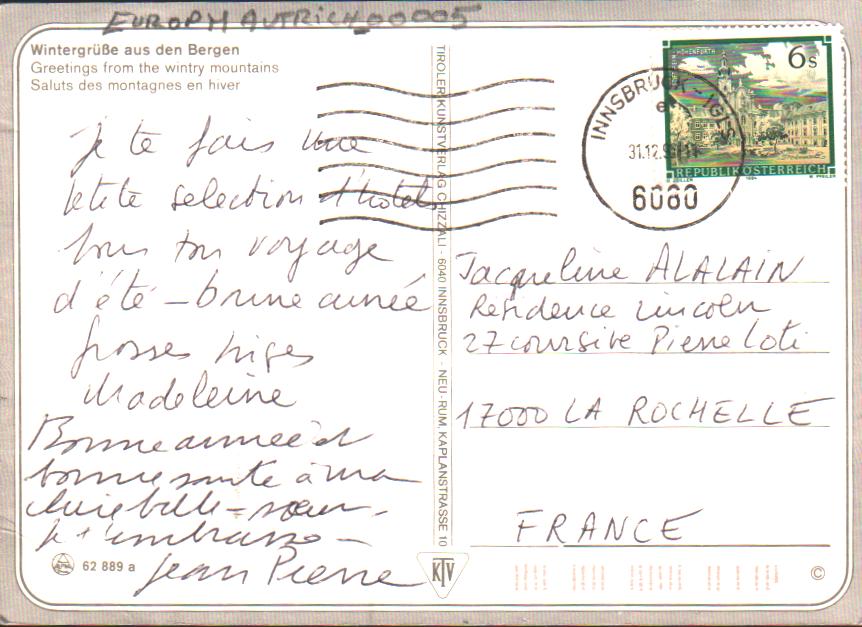 EUROPM AUTRICH00005
Wintergrüße aus den Bergen
Greetings from the wintry mountains
Saluts des montagnes en hiver
Je te fais une
petite selection d'hotels
pour ton voyage
d'été - bonne année
Grosses bises
Madeleine
Bonne année et
bonne santé à ma
chère belle-sœur.
Je t'embrasse -
Jean Pierre
62 889 a
TIROLER KUNSTVERLAG CHIZZALI · 6040 INNSBRUCK · NEU-RUM, KAPLANSTRASSE 10
KTV
6s
STIFT HOHENFURTH
REPUBLIK ÖSTERREICH
1994
INNSBRUCK - IGLS
31.12.9
6080
Jacqueline ALALAIN
Residence Lincoln
27 coursive Pierre Loti
17000 LA ROCHELLE
FRANCE
©